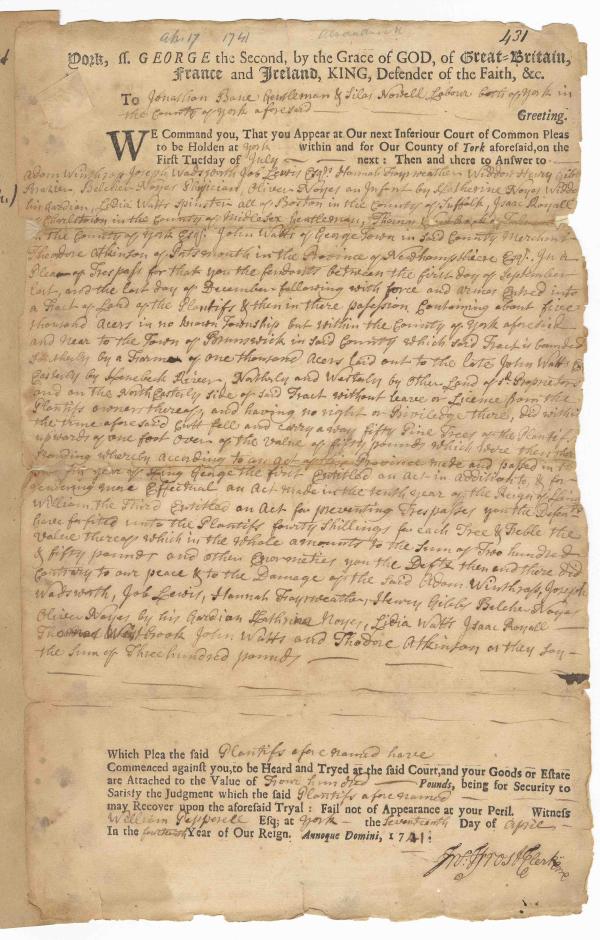 Apr 17 1741
431
York, ss. GEORGE the Second, by the Grace of GOD, of Great-Britain,
France and Ireland, KING, Defender of the Faith, &c.
To Jonathan Bane Gentleman & Silas Nowell Labour both of York in
the County of York aforesaid
Greeting.
WE Command you, That you Appear at Our next Inferiour Court of Common Pleas
to be Holden at York within and for Our County of York aforesaid, on the
First Tuesday of July next: Then and there to Answer to
Adam Winthrop Joseph Wadsworth Job Lewis Esqrs. Hannah Fayrweather Widdow Henry Gibbs
Belcher Noyes Physician, Oliver Noyes an Infant by Katherine Noyes Widdow
his Gardian, Lidia Watts Spinster all of Boston in the County of Suffolk, Isaac Royall
of Charlstown in the County of Middlesex Gentleman, Thomas Westbrook of Falmouth
in the County of York Esqr. John Watts of George Town in said County Merchant
Theodore Atkinson of Portsmouth in the Province of Newhampshire Esqr. In a
Plea of Trespass for that you the Defendants between the first day of September
last, and the last day of December following with force and armes Entred into
a Tract of Land of the Plantifs & then in there possession Containing about five
thousand Acers in no known Township but within the County of York aforesaid
and near to the Town of Brunswick in said County which said Tract is bounded
Southerly by a Farme of one thousand Acers laid out to the late John Watts
Easterly by Kenebeck River, Northerly and Westerly by Other Land of sd. Proprietors
and on the North Easterly side of said Tract without leave or Licence from the
Plantifs owners thereof, and having no right or Priviledge there, did within
the time aforesaid Cutt fell and carry away fifty Pine Trees of the Plantifs
upwards of one foot over of the value of fifty pounds which were then there
standing whereby according to an Act of this Province made and passed in the
year of King George the first Entitled an Act in Addition to, & for
rendering more Effectual an Act made in the tenth year of the Reign of King
William the Third Entitled an Act for preventing Trespasses you the Defendts
have forfited unto the Plantifs fourty Shillings for each Tree & Treble the
value thereof which in the Whole amounts to the Sum of Two hundred
& fifty pounds and other Enormeties you the Defts then and there did
Contrary to our peace & to the Damage of the said Adam Winthrop, Joseph
Wadsworth, Job Lewis, Hannah Fayrweather, Henery Gibbs Belcher Noyes
Oliver Noyes by his Gardian Katherine Noyes, Lidia Watts Isaac Royall
Thomas Westbrook John Watts and Thodore Atkinson as they say
the Sum of Three hundred pounds
Which Plea the said Plantifs afore named have
Commenced against you, to be Heard and Tryed at the said Court, and your Goods or Estate
are Attached to the Value of Four hundred Pounds, being for Security to
Satisfy the Judgment which the said Plantifs afore named
may Recover upon the aforesaid Tryal: Fail not of Appearance at your Peril. Witness
William Pepperell Esq; at York the Seventeenth Day of April
In the fourteenth Year of Our Reign. Annoque Domini, 1741.
Jno: Frost Clerk